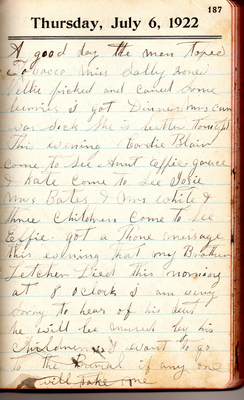 187
Thursday, July 6, 1922
A good day the men toped
Tobacco Miss Sally
picked and caned some
berries I got Dinner mrs
was sick She is better Tonight
This evening Gordie Blair
come to See Aunt Effie
& Kate come to See Josie
Mrs Bates & Mrs White &
three Children Come to See
Effie got a Phone message
this evening that my Brother
Letcher Died this morning
at 8 oclock I am very
sorry to hear of his deat
he will be missed by his
Children I want to go
to the Burial if any one
will take me